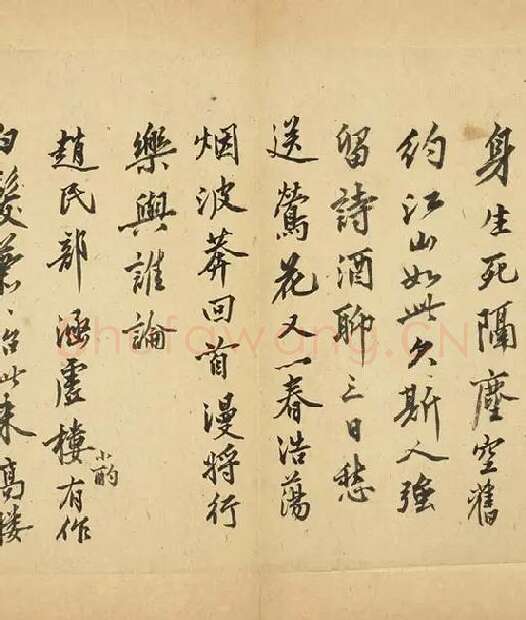 身生死隔塵空舊
約江山如此欠斯人強
留詩酒聊三日愁
送鶯花又一春浩蕩
烟波莽回首漫將行
樂與誰論
趙民部涵虛樓小酌有作
白髮此来高楼
shufawang.CN